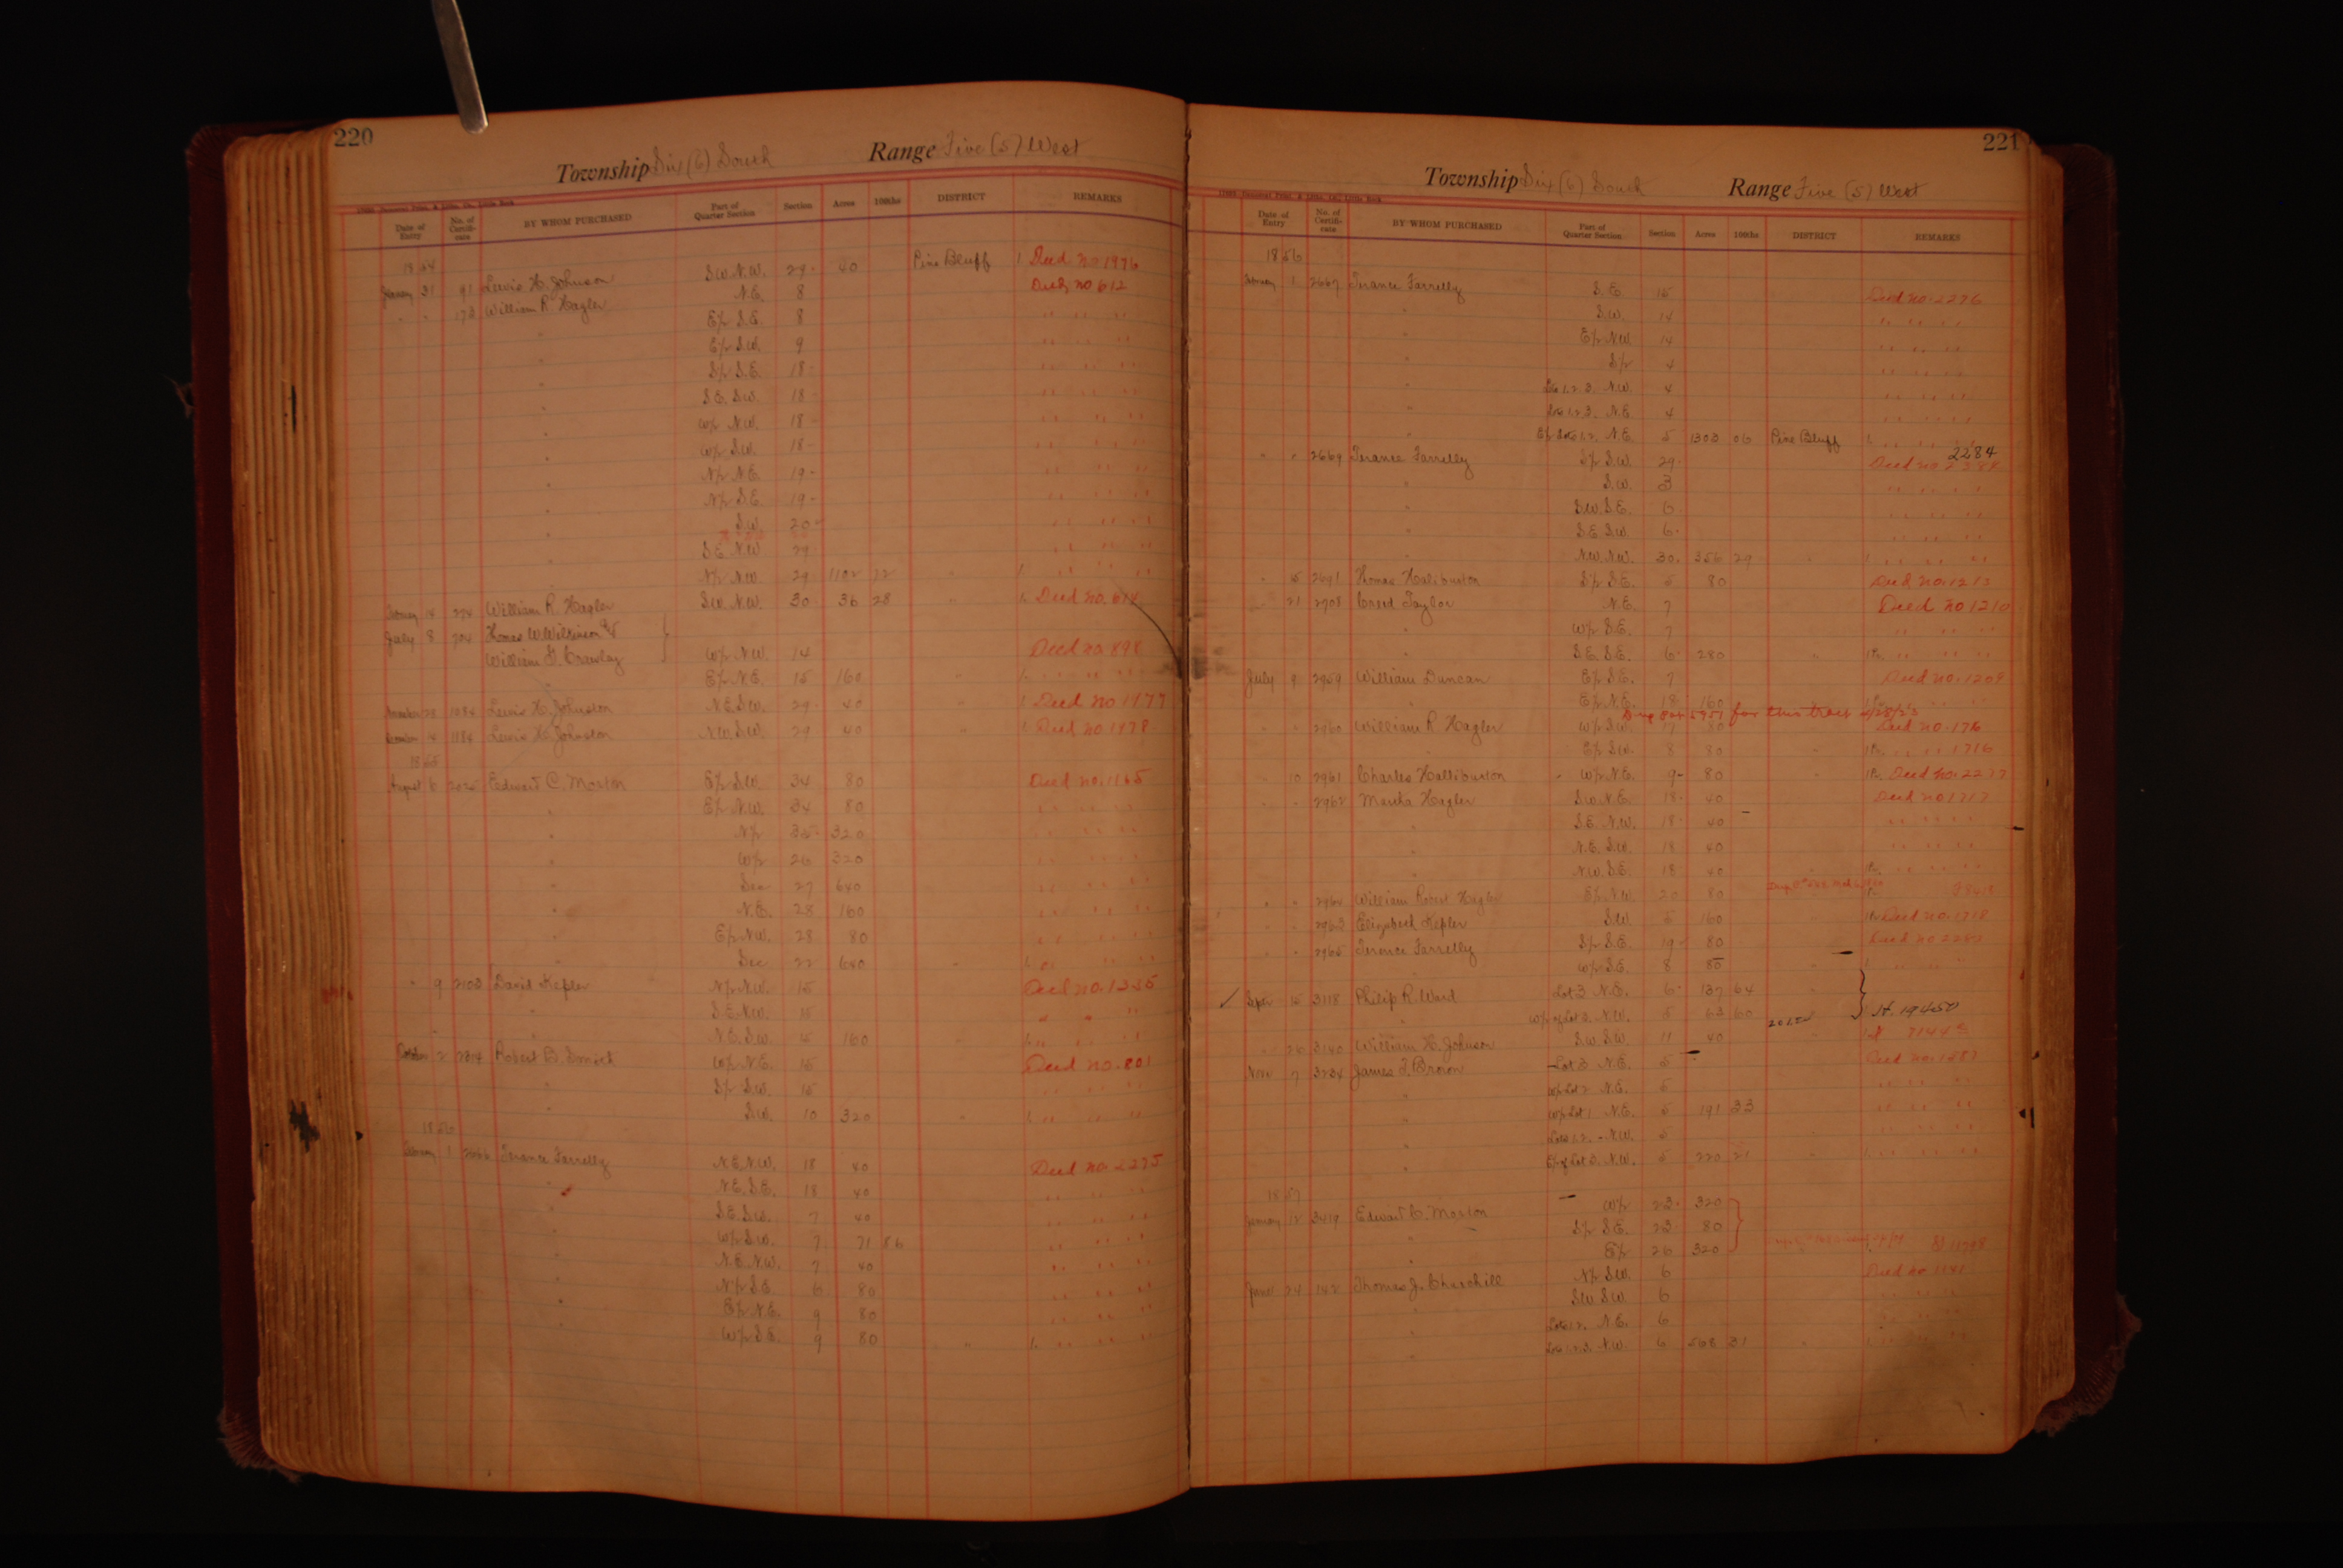 220
Township Six (6) South Range Five (5) West
Date of Entry No. of Certificate BY WHOM PURCHASED Part of Quarter Section Section Acres 100ths DISTRICT REMARKS
1854
31 91 Lewis H. Johnson S.W. N.W. 29 40 Pine Bluff Deed no 1976
" " 173 William R. Hagler N.E. 8 Deed no 612
" E/2 S.E. 8 " " "
" E/2 S.W. 9 " " "
" S/2 S.E. 18 " " "
" S.E. S.W. 18 " " "
" W/2 N.W. 18 " " "
" W/2 S.W. 18 " " "
" N/2 N.E. 19 " " "
" N/2 S.E. 19 " " "
" S.W. 20 " " "
" S.E. N.W. 29 " " "
" N/2 N.W. 29 1102 72 " " " "
14 274 William R. Hagler S.W. N.W. 30 36 28 " Deed no. 614
July 8 704 Thomas W. Wilkinson &
William G. Crawley W/2 N.W. 14 Deed no 898
" E/2 N.E. 15 160 " " " "
28 1084 Lewis H. Johnston N.E. S.W. 29 40 " Deed no 1977
4 1184 Lewis H. Johnston N.W. S.W. 29 40 " Deed no 1978
1855
August 6 Edward C. Morton E/2 S.W. 34 80 Deed no. 1165
" E/2 N.W. 34 80 " " "
" N/2 35 320 " " "
" W/2 26 320 " " "
" Sec 27 640 " " "
" N.E. 28 160 " " "
" E/2 N.W. 28 80 " " "
" Sec 22 640 " " " "
" 9 2103 David Kepler N/2 N.W. 15 Deed no. 1255
" S.E. N.W. 15 " " "
" N.E. S.W. 15 160 " " " "
October 2 2314 Robert B. Smith W/2 N.E. 15 Deed no. 801
" S/2 S.W. 15 " " "
" S.W. 10 320 " " " "
1856
1 2666 Terance Farrelly N.E. N.W. 18 40 Deed no. 2275
" N.E. S.E. 18 40 " " "
" S.E. S.W. 7 40 " " "
" W/2 S.W. 7 71 86 " " "
" N.E. N.W. 7 40 " " "
" N/2 S.E. 6 80 " " "
" E/2 N.E. 9 80 " " "
" W/2 S.E. 9 80 " " " "
221
Township Six (6) South Range Five (5) West
Date of Entry No. of Certificate BY WHOM PURCHASED Part of Quarter Section Section Acres 100ths DISTRICT REMARKS
1856
1 2667 Terance Farrelly S.E. 15 Deed no. 2276
" S.W. 14 " " "
" E/2 N.W. 14 " " "
" S/2 4 " " "
" Lots 1.2.3. N.W. 4 " " "
" Lots 1.2.3. N.E. 4 " " "
" E/2 Lots 1.2. N.E. 5 1303 06 Pine Bluff " " "
2284
" " 2669 Terance Farrelly S/2 S.W. 29 Deed no
" S.W. 3 " " "
" S.W. S.E. 6 " " "
" S.E. S.W. 6 " " "
" N.W. N.W. 30 356 29 " " " "
" 15 2691 Thomas Haliburton S/2 S.E. 5 80 Deed no. 1213
" 21 2708 Creed Taylor N.E. 7 Deed no 1210
" W/2 S.E. 7 " " "
" S.E. S.E. 6 280 " " " "
July 9 2959 William Duncan E/2 S.E. 7 Deed no. 1209
" E/2 N.E. 18 160 " " "
for this tract
" " 2960 William R Hagler W/2 S.W. 7 80 Deed no. 176
" E/2 S.W. 8 80 " " " 1716
" 10 2961 Charles Halliburton W/2 N.E. 9 80 " Deed no. 2277
" " 2962 Martha Hagler S.W. N.E. 18 40 Deed no 1717
" S.E. N.W. 18 40 " " "
" N.E. S.W. 18 40 " " "
" N.W. S.E. 18 40 " " " "
" " 2964 William Robert Hagler E/2 N.W. 20 80
" " 2963 Elizabeth Kepler S.W. 5 160 Deed no. 1718
" " 2965 Terence Farrelly S/2 S.E. 19 80 Deed no 2283
" W/2 S.E. 8 80 " " "
✓ Septr 15 3118 Philip R. Ward Lot 3 N.E. 6 137 64 "
" W/2 of Lot 3. N.W. 5 63 60 St. 19450
" 26 3140 William H. Johnson S.W. S.W. 11 40 "
Nov 7 3234 James T. Brown Lot 3 N.E. 5 Deed no.
" W/2 Lot 2 N.E. 5 " " "
" W/2 Lot 1 N.E. 5 191 33 " " "
" Lots 1.2. N.W. 5 " " "
" E/2 of Lot 3. N.W. 5 220 21 " " " "
1857
January 12 3419 Edward C. Morton W/2 23 320
" S/2 S.E. 23 80
" E/2 26 320
June 24 142 Thomas J. Churchill N/2 S.W. 6 Deed no 1141
" S.W. S.W. 6 " " "
" Lots 1.2. N.E. 6 " " "
" Lots 1.2.3. N.W. 6 568 31 " " " "